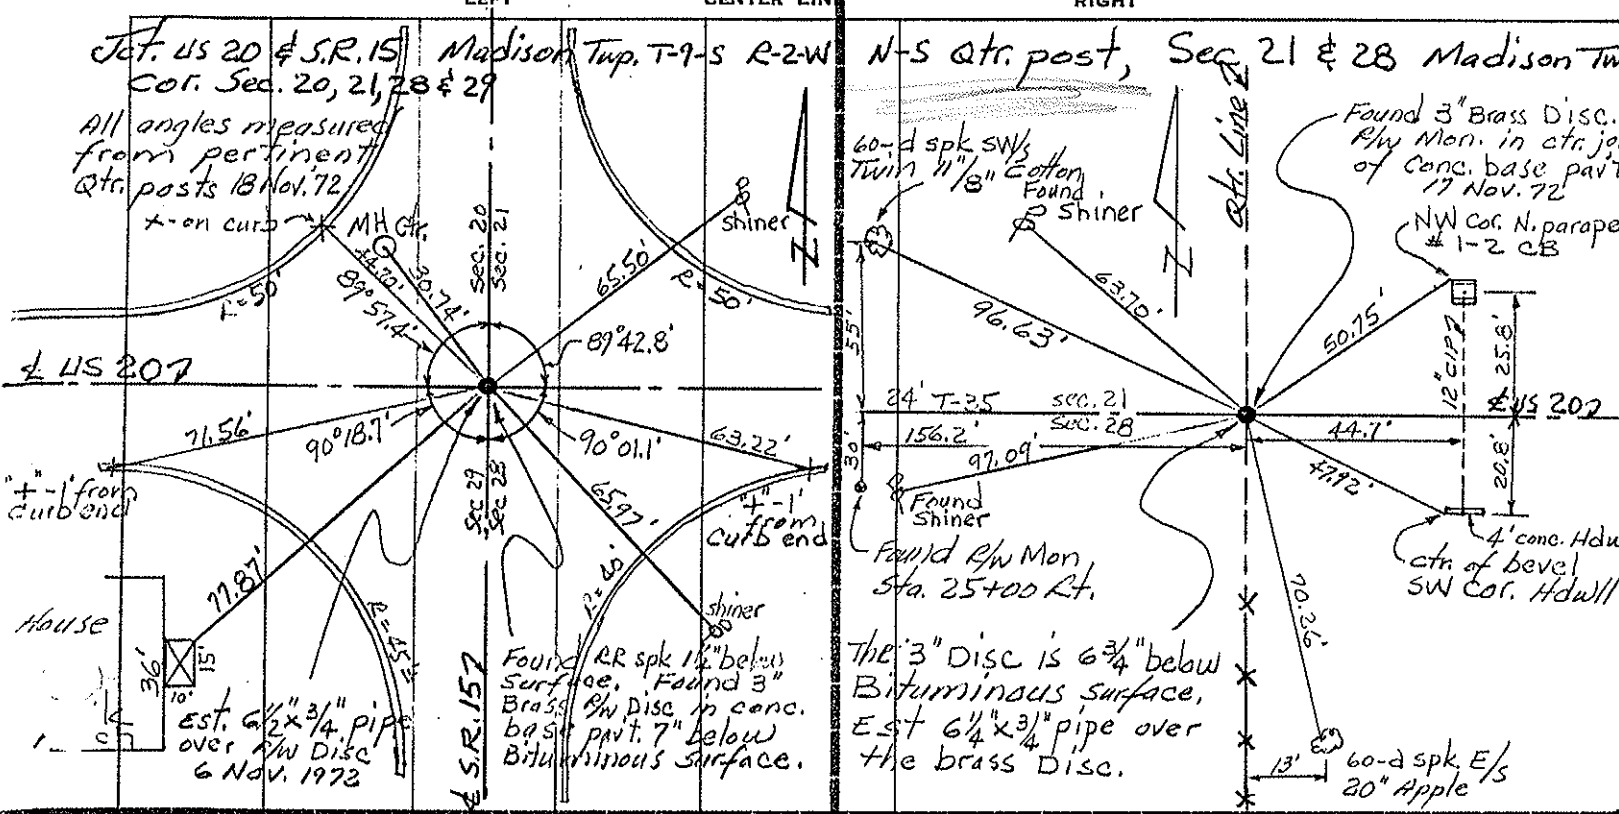 LEFT
CENTER LINE
RIGHT
Jct. US 20 & S.R. 15 Madison Twp. T-9-S R-2-W
Cor. Sec. 20, 21, 28 & 29
All angles measured
from pertinent
Qtr. posts 18 Nov. 72
x-on curb
MH Ctr.
44.70'
30.74'
89°57.4'
R=50'
Sec. 20
Sec. 21
65.50'
Shiner
R=50'
N
89°42.8'
℄ US 20
71.56'
90°18.7'
90°01.1'
63.22'
"+"-1' from
curb end
Sec 29
Sec 28
65.97'
"+"-1'
from
curb end
77.87'
House
36'
15'
10'
R=45'
R=40'
shiner
Est. 6½"x¾" pipe
over R/W Disc
6 Nov. 1972
℄ S.R. 15
Found RR spk 1½" below
Surface. Found 3"
Brass R/W Disc in conc.
base pav't. 7" below
Bituminous surface.
N-S Qtr. post, Sec 21 & 28 Madison Tw
60-d spk SW/s
Twin 11"/8" Cotton
Found
Shiner
N
Qtr. Line
Found 3" Brass Disc.
R/W Mon. in ctr. jo
of conc. base pav't
17 Nov. 72
NW Cor. N. parape
# 1-2 CB
63.70'
96.63'
50.75'
55'
12" CIP
25.8'
24' T-35
sec. 21
sec. 28
℄ US 20
156.2'
44.7'
97.09'
30'
47.92'
20.8'
Found
Shiner
Found R/W Mon
Sta. 25+00 Rt.
4' conc. Hdw
ctr. of bevel
SW Cor. Hdwll
70.26'
The 3" Disc is 6¾" below
Bituminous surface,
Est 6¼"x¾" pipe over
the brass Disc.
13'
60-d spk. E/s
20" Apple